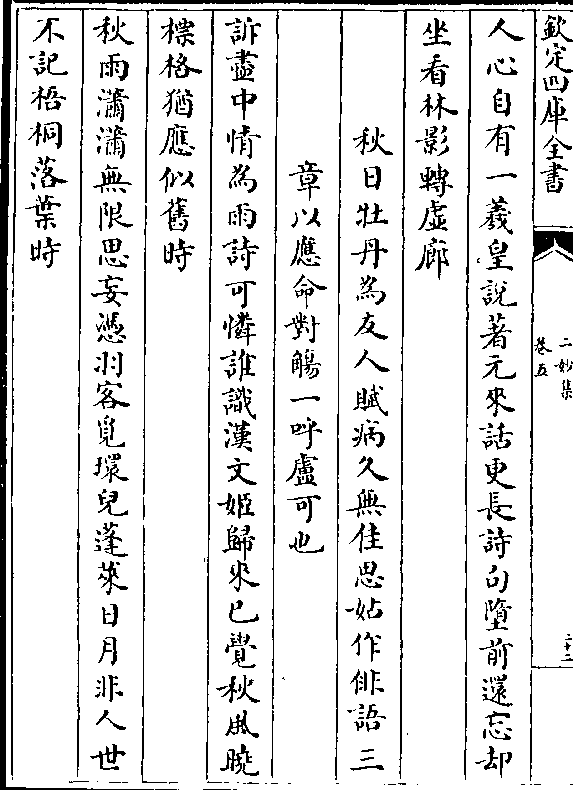 欽定四庫全書
二妙集
卷五
二十二
人心自有一羲皇說著元來話更長詩句墮前還忘却
坐看林影轉虛廊
秋日牡丹為友人賦病久無佳思姑作俳語三
章以應命對觴一呼盧可也
訴盡中情為雨詩可憐誰識漢文姬歸來已覺秋風曉
標格猶應似舊時
秋雨瀟瀟無限思妄憑羽客覓環兒蓬萊日月非人世
不記梧桐落葉時